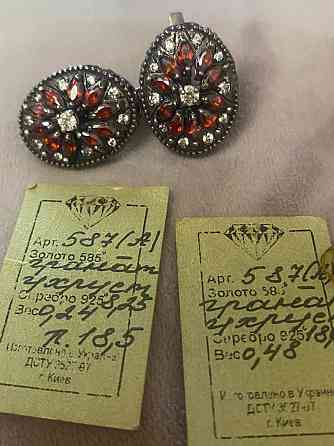 Арт. 587(А)
Золото 585
гранат
Серебро 925 8,25
Вес 0,24
п. 18,5
Изготовлено в Украине
ДСТУ 3527-97
г. Киев
Арт. 587(А)
Золото 585
грана
Серебро 925 18,
Вес 0,48
Изготовлено в Украине
ДСТУ 3527-97
г. Киев